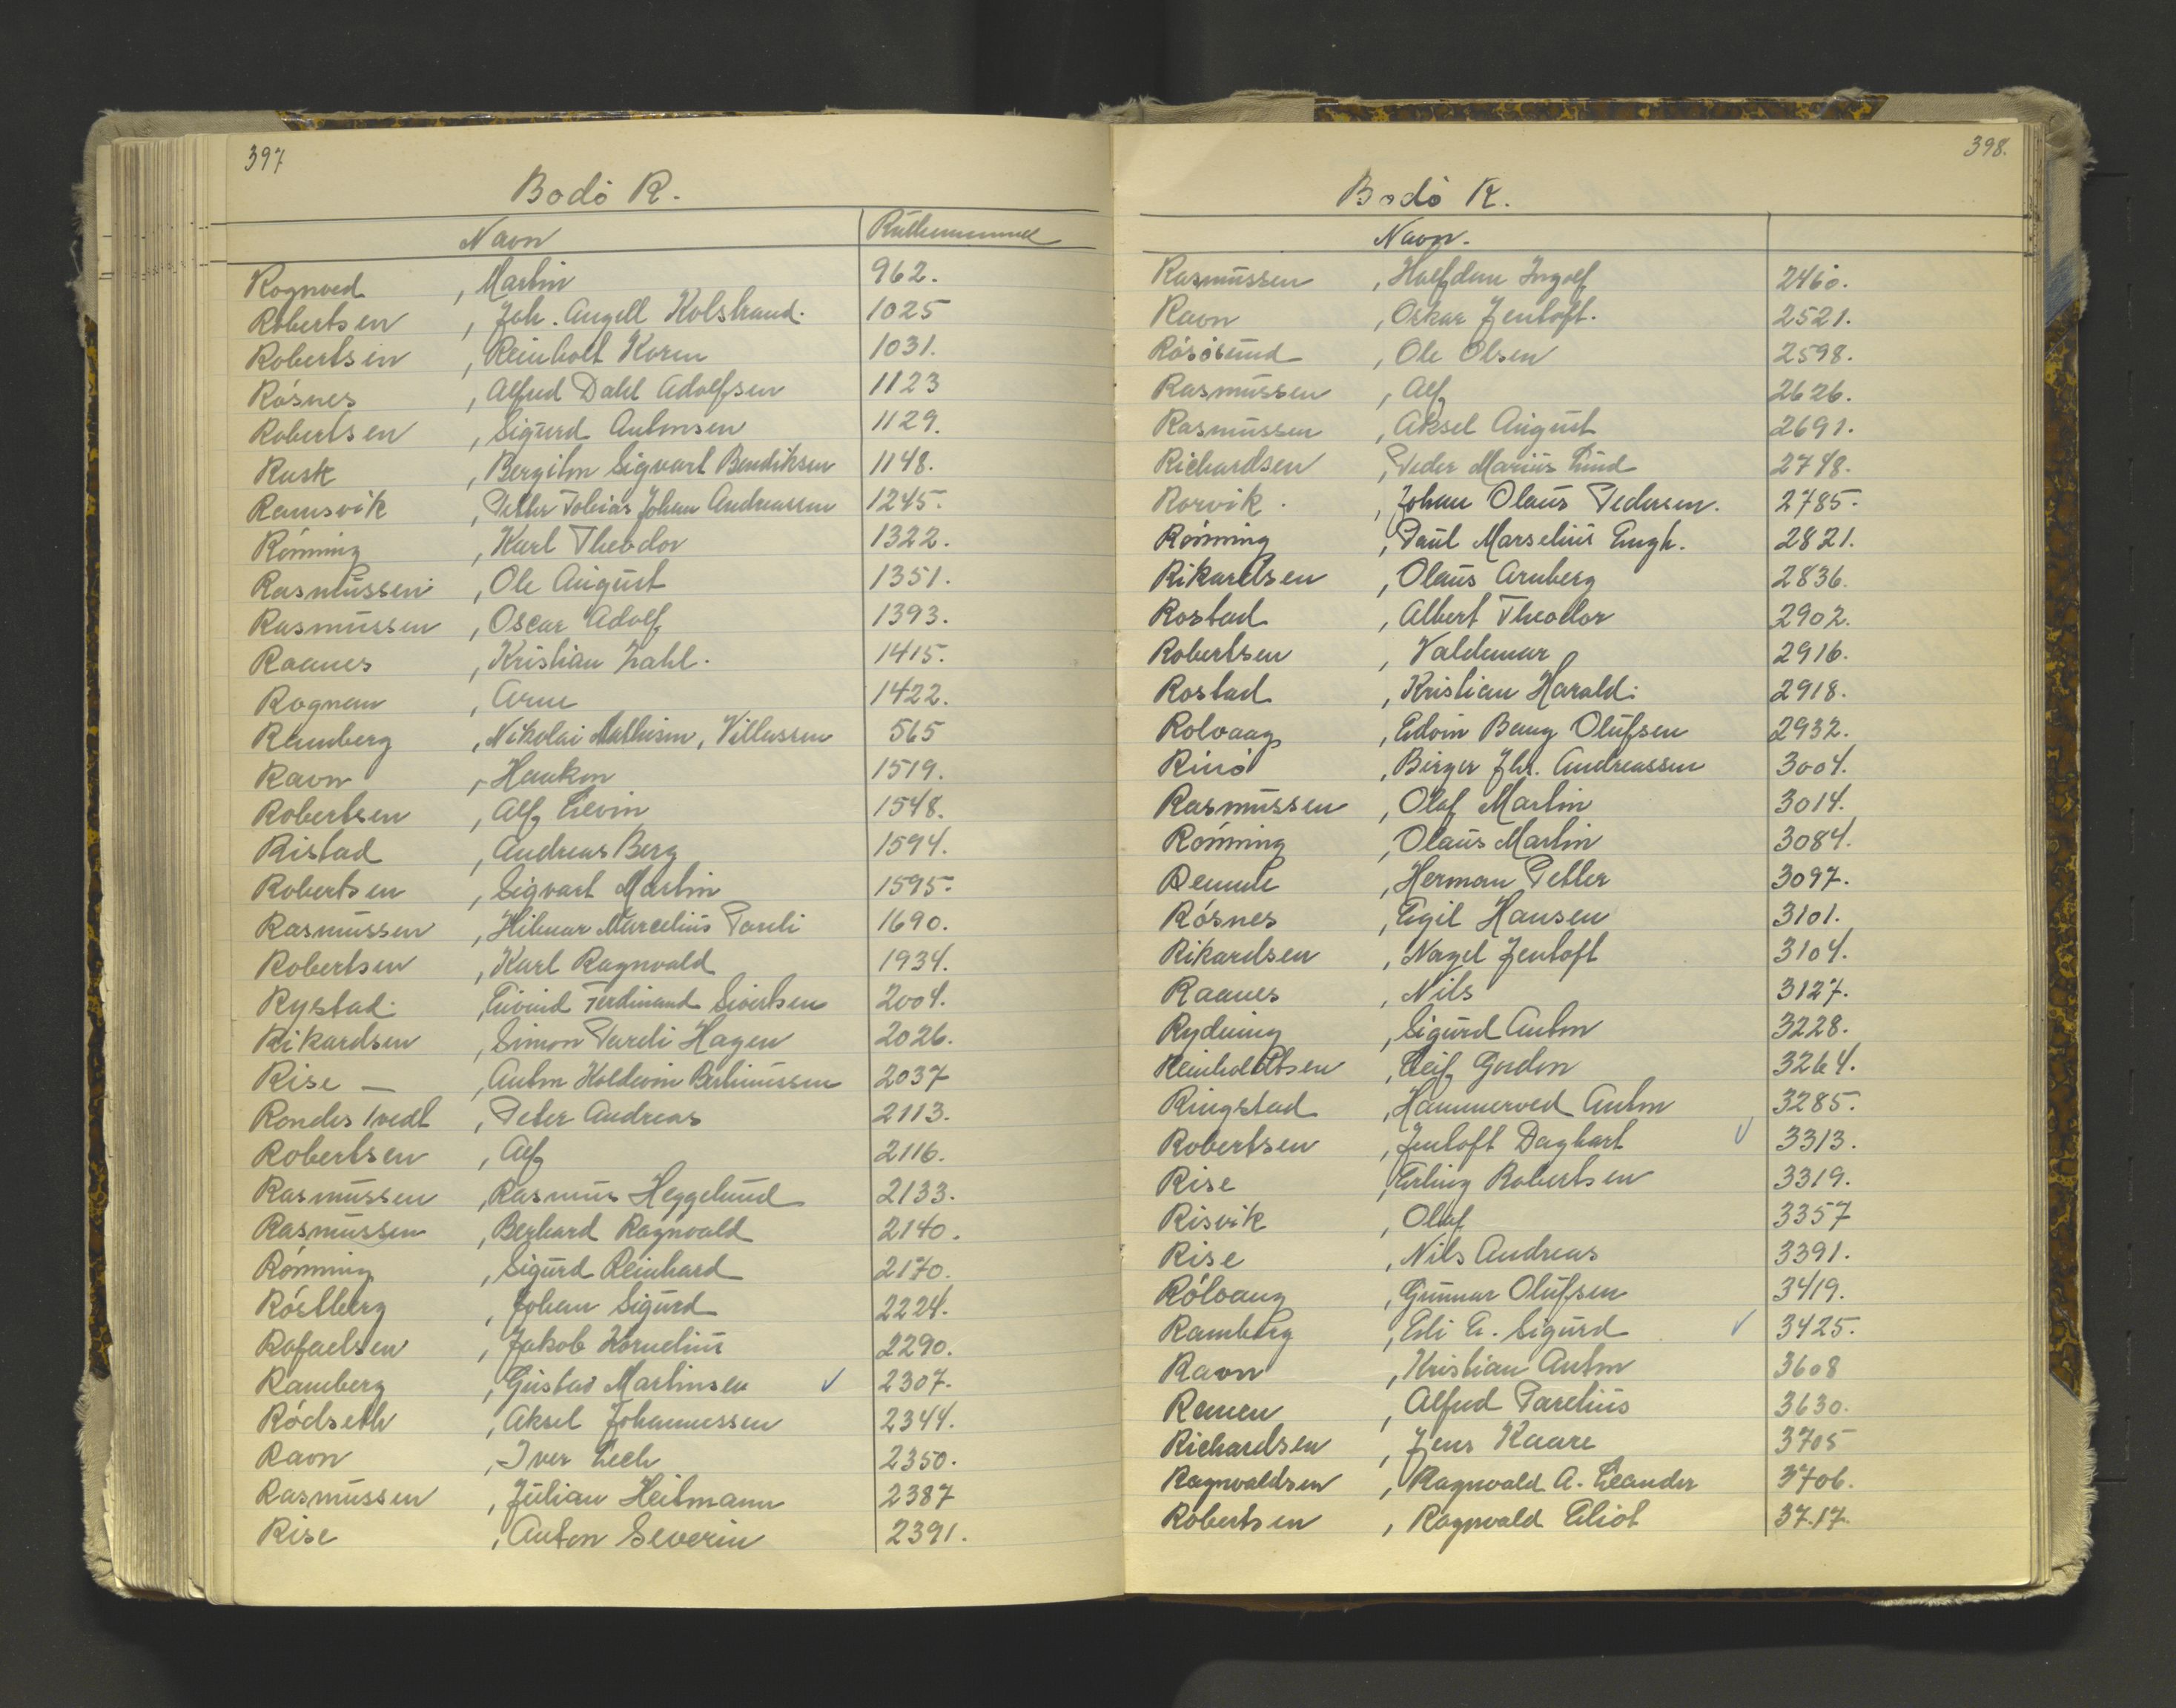 397
Bodó R.
Navn Rullenummer
Rognved , Martin 962.
Robertsen , Joh. Angell Kolstrand. 1025
Robertsen , Reinholt Koren 1031.
Rósnes , Alfred Dahl Adolfsen 1123
Robertsen , Sigurd Antonsen 1129.
Rusk , Bergiton Sigvart Bendiksen 1148.
Ramsvik , Petter Tobias Johan Andreassen 1245.
Rónning , Karl Theodor 1322.
Rasmussen , Ole August 1351.
Rasmussen , Oscar Adolf 1393.
Raanes , Kristian Zahl. 1415.
Rognan , Arne 1422.
Ramberg , Nikolai Mathisen, Villassen 565
Ravn , Haakon 1519.
Robertsen , Alf Levin 1548.
Ristad , Andreas Berg 1594.
Robertsen , Sigvart Martin 1595.
Rasmussen , Hilmar Marcelius Pareli 1690.
Robertsen , Karl Ragnvald 1934.
Rystad. , Eivind Ferdinand Sivertsen 2004.
Rikardsen , Simon Pareli Hagen 2026.
Rise — , Anton Holdevin Berlinussen 2037
Rondestvedt , Peter Andreas 2113.
Robertsen , Alf 2116.
Rasmussen , Rasmus Heggelund 2133.
Rasmussen , Berhard Ragnvald 2140.
Rónning , Sigurd Reinhard 2170.
Róstberg , Johan Sigurd 2224.
Rafaelsen , Jakob Kornelius 2290.
Ramberg , Gustav Martinsen ✓ 2307.
Ródseth , Aksel Johannessen 2344.
Ravn , Iver Lech 2350.
Rasmussen , Julian Heitmann 2387
Rise , Anton Severin 2391.
398.
Bodó R.
Navn.
Rasmussen , Halfdan Ingolf 2460.
Ravn , Oskar Jentoft. 2521.
Rósósund , Ole Olsen 2598.
Rasmussen , Alf 2626.
Rasmussen , Aksel August 2691.
Richardsen , Peder Marius Lund 2748.
Rorvik . , Johan Olaus Pedersen. 2785.
Rónning , Paul Marselius Engh. 2821.
Rikardsen , Olaus Arnberg 2836.
Rostad , Albert Theodor 2902.
Robertsen , Valdemar 2916.
Rostad , Kristian Harald. 2918.
Rolvaag , Edvin Bang Olufsen 2932.
Rinó , Birger Jhs. Andreassen 3004.
Rasmussen , Olaf Martin 3014.
Rónning , Olaus Martin 3084.
, Herman Petter 3097.
Rósnes , Egil Hansen 3101.
Rikardsen , Nagel Jentoft 3104.
Raanes , Nils 3127.
Rydning , Sigurd Anton 3228.
Reinholdtsen , Leif Gordon 3264.
Ringstad , Hammerved Anton 3285.
Robertsen , Jentoft Daghart ✓ 3313.
Rise , Erling Robertsen 3319.
Risvik , Olaf 3357
Rise , Nils Andreas 3391.
Rólvaag , Gunnar Olufsen 3419.
Ramberg , Edi E. Sigurd ✓ 3425.
Ravn , Kristian Anton 3608
Ramen , Alfred Parelius 3630.
Richardsen , Jens Kaare 3705
Ragnvaldsen , Ragnvald A. Leander 3706.
Robertsen , Ragnvald Eliot 3717.